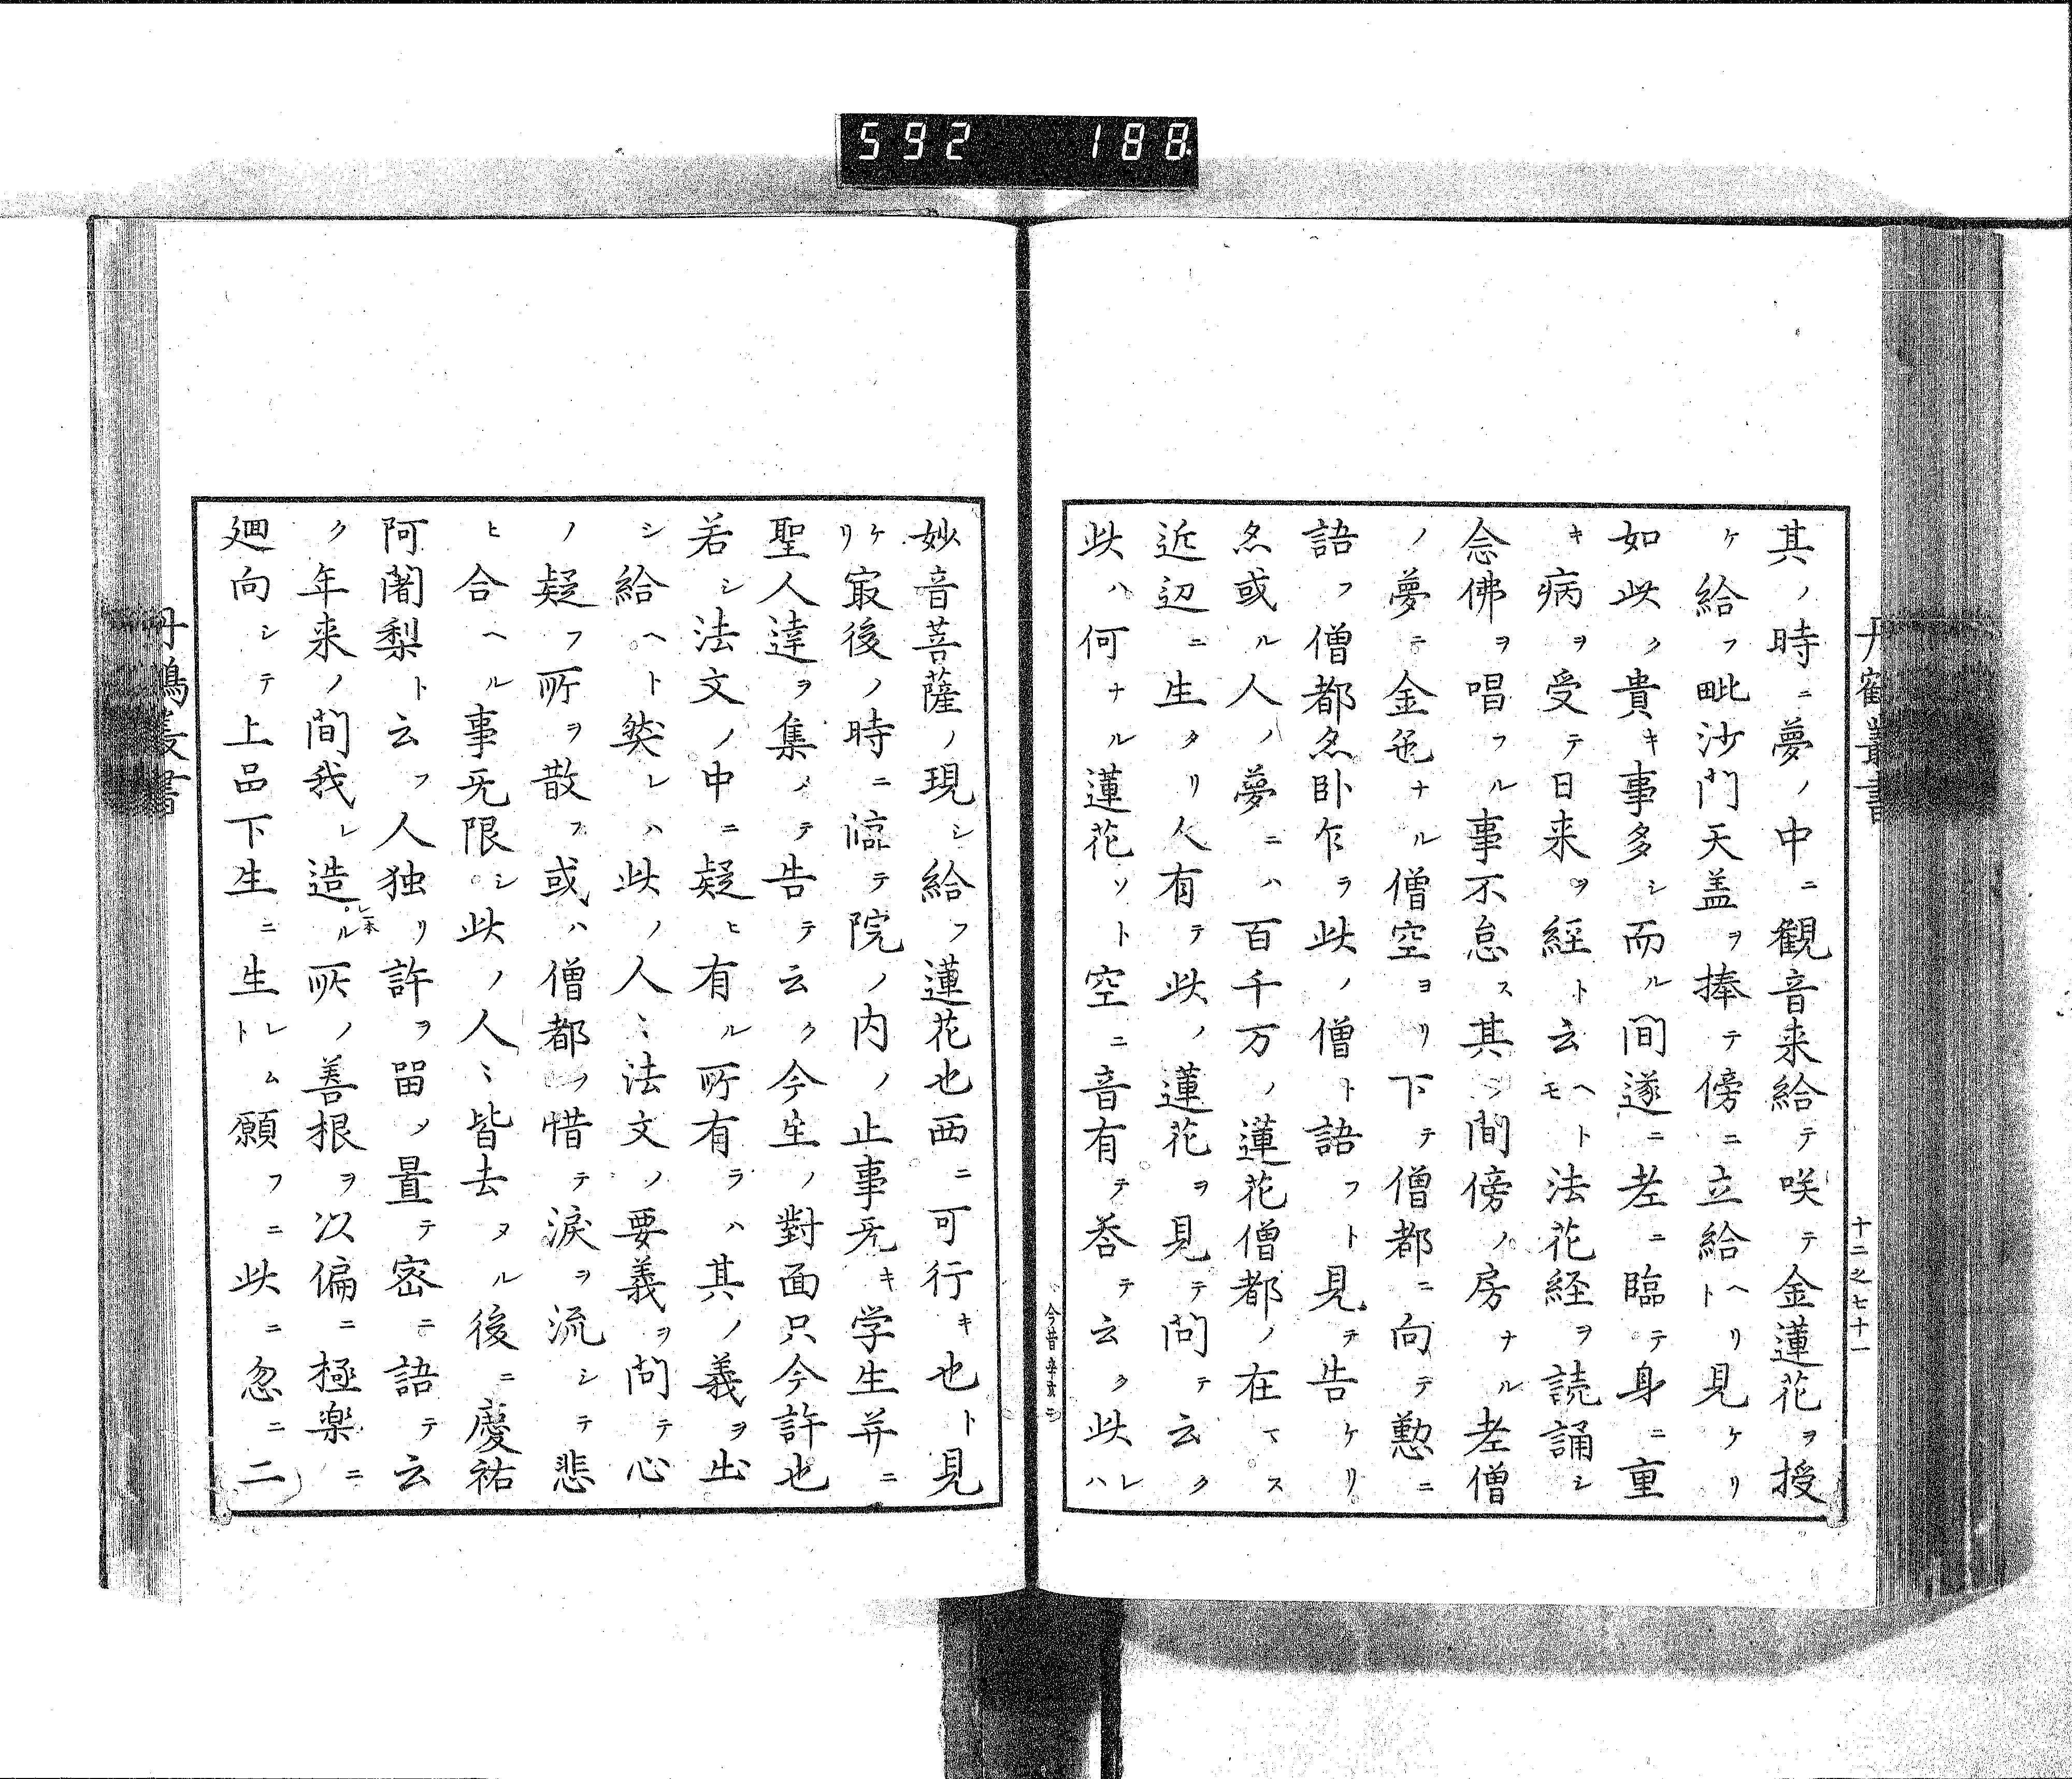 592 188
丹鶴叢書
十二之七十一
其ノ時ニ夢ノ中ニ観音来給テ咲テ金蓮花ヲ授
ケ給フ毗沙門天盖ヲ捧テ傍ニ立給ヘリト見ケリ
如此ク貴キ事多シ而ル間遂ニ老ニ臨テ身ニ重
キ病ヲ受テ日来ヲ経ト云ヘトモ法花経ヲ読誦シ
念佛ヲ唱フル事不怠ス其ノ間傍ノ房ナル老僧
ノ夢ニ金色ナル僧空ヨリ下テ僧都ニ向テ懃ニ
語フ僧都亦臥乍ラ此ノ僧ト語フト見テ告ケリ
亦或ル人ノ夢ニハ百千万ノ蓮花僧都ノ在マス
近辺ニ生タリ人有テ此ノ蓮花ヲ見テ問テ云ク
此ハ何ナル蓮花ソト空ニ音有テ荅テ云ク此レハ
今昔 辛亥二
妙音菩薩ノ現シ給フ蓮花也西ニ可行キ也ト見
ケリ冣後ノ時ニ臨テ院ノ内ノ止事无キ学生并ニ
聖人達ヲ集メテ告テ云ク今生ノ對面只今許也
若シ法文ノ中ニ疑ヒ有ル所有ラハ其ノ義ヲ出
シ給ヘト然レハ此ノ人〻法文ノ要義ヲ問テ心
ノ疑フ所ヲ散フ或ハ僧都ヲ惜テ涙ヲ流シテ悲
ヒ合ヘル事无限シ此ノ人〻皆去ヌル後ニ慶祐
阿闍梨ト云フ人独リ許ヲ留メ置テ密ニ語テ云
ク年来ノ間我レ造ル所ノ善根ヲ以偏ニ極楽ニ
廻向シテ上品下生ニ生レムト願フニ此ニ忽ニ二
丹鶴叢書